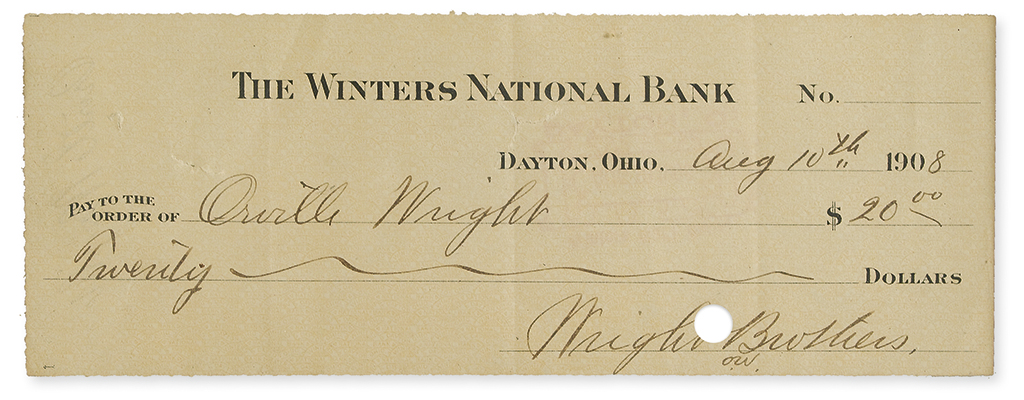 THE WINTERS NATIONAL BANK No.
DAYTON, OHIO, Aug 10th 1908
PAY TO THE ORDER OF Orville Wright $ 20 00
Twenty DOLLARS
Wright Brothers.
O.W.